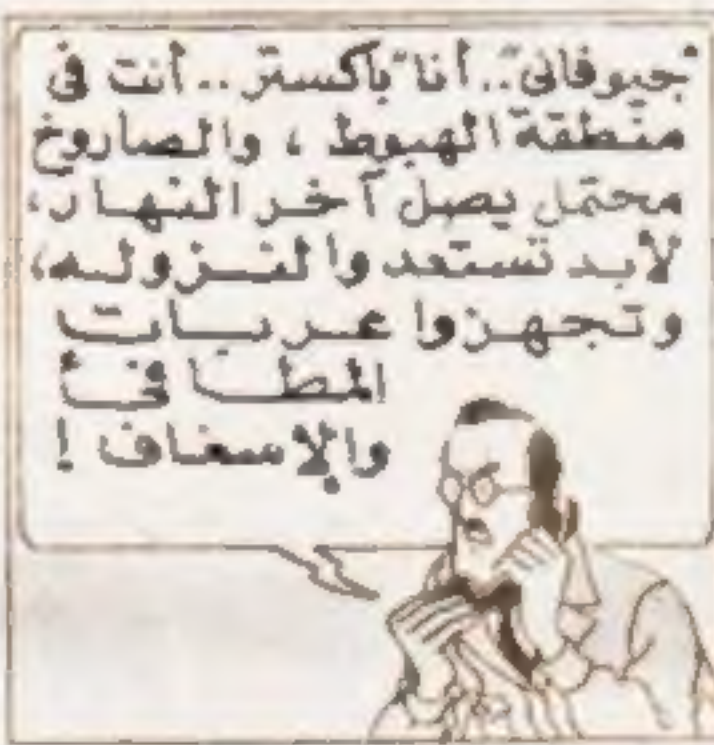 "جيوفانى".. أنا "باكستر".. أنت فى
منطقة الهبوط ، والصاروخ
محتمل يصل آخر النهار،
لابد تستعدوا لنزوله،
وتجهزوا عربات
المطافئ
والإسعاف !